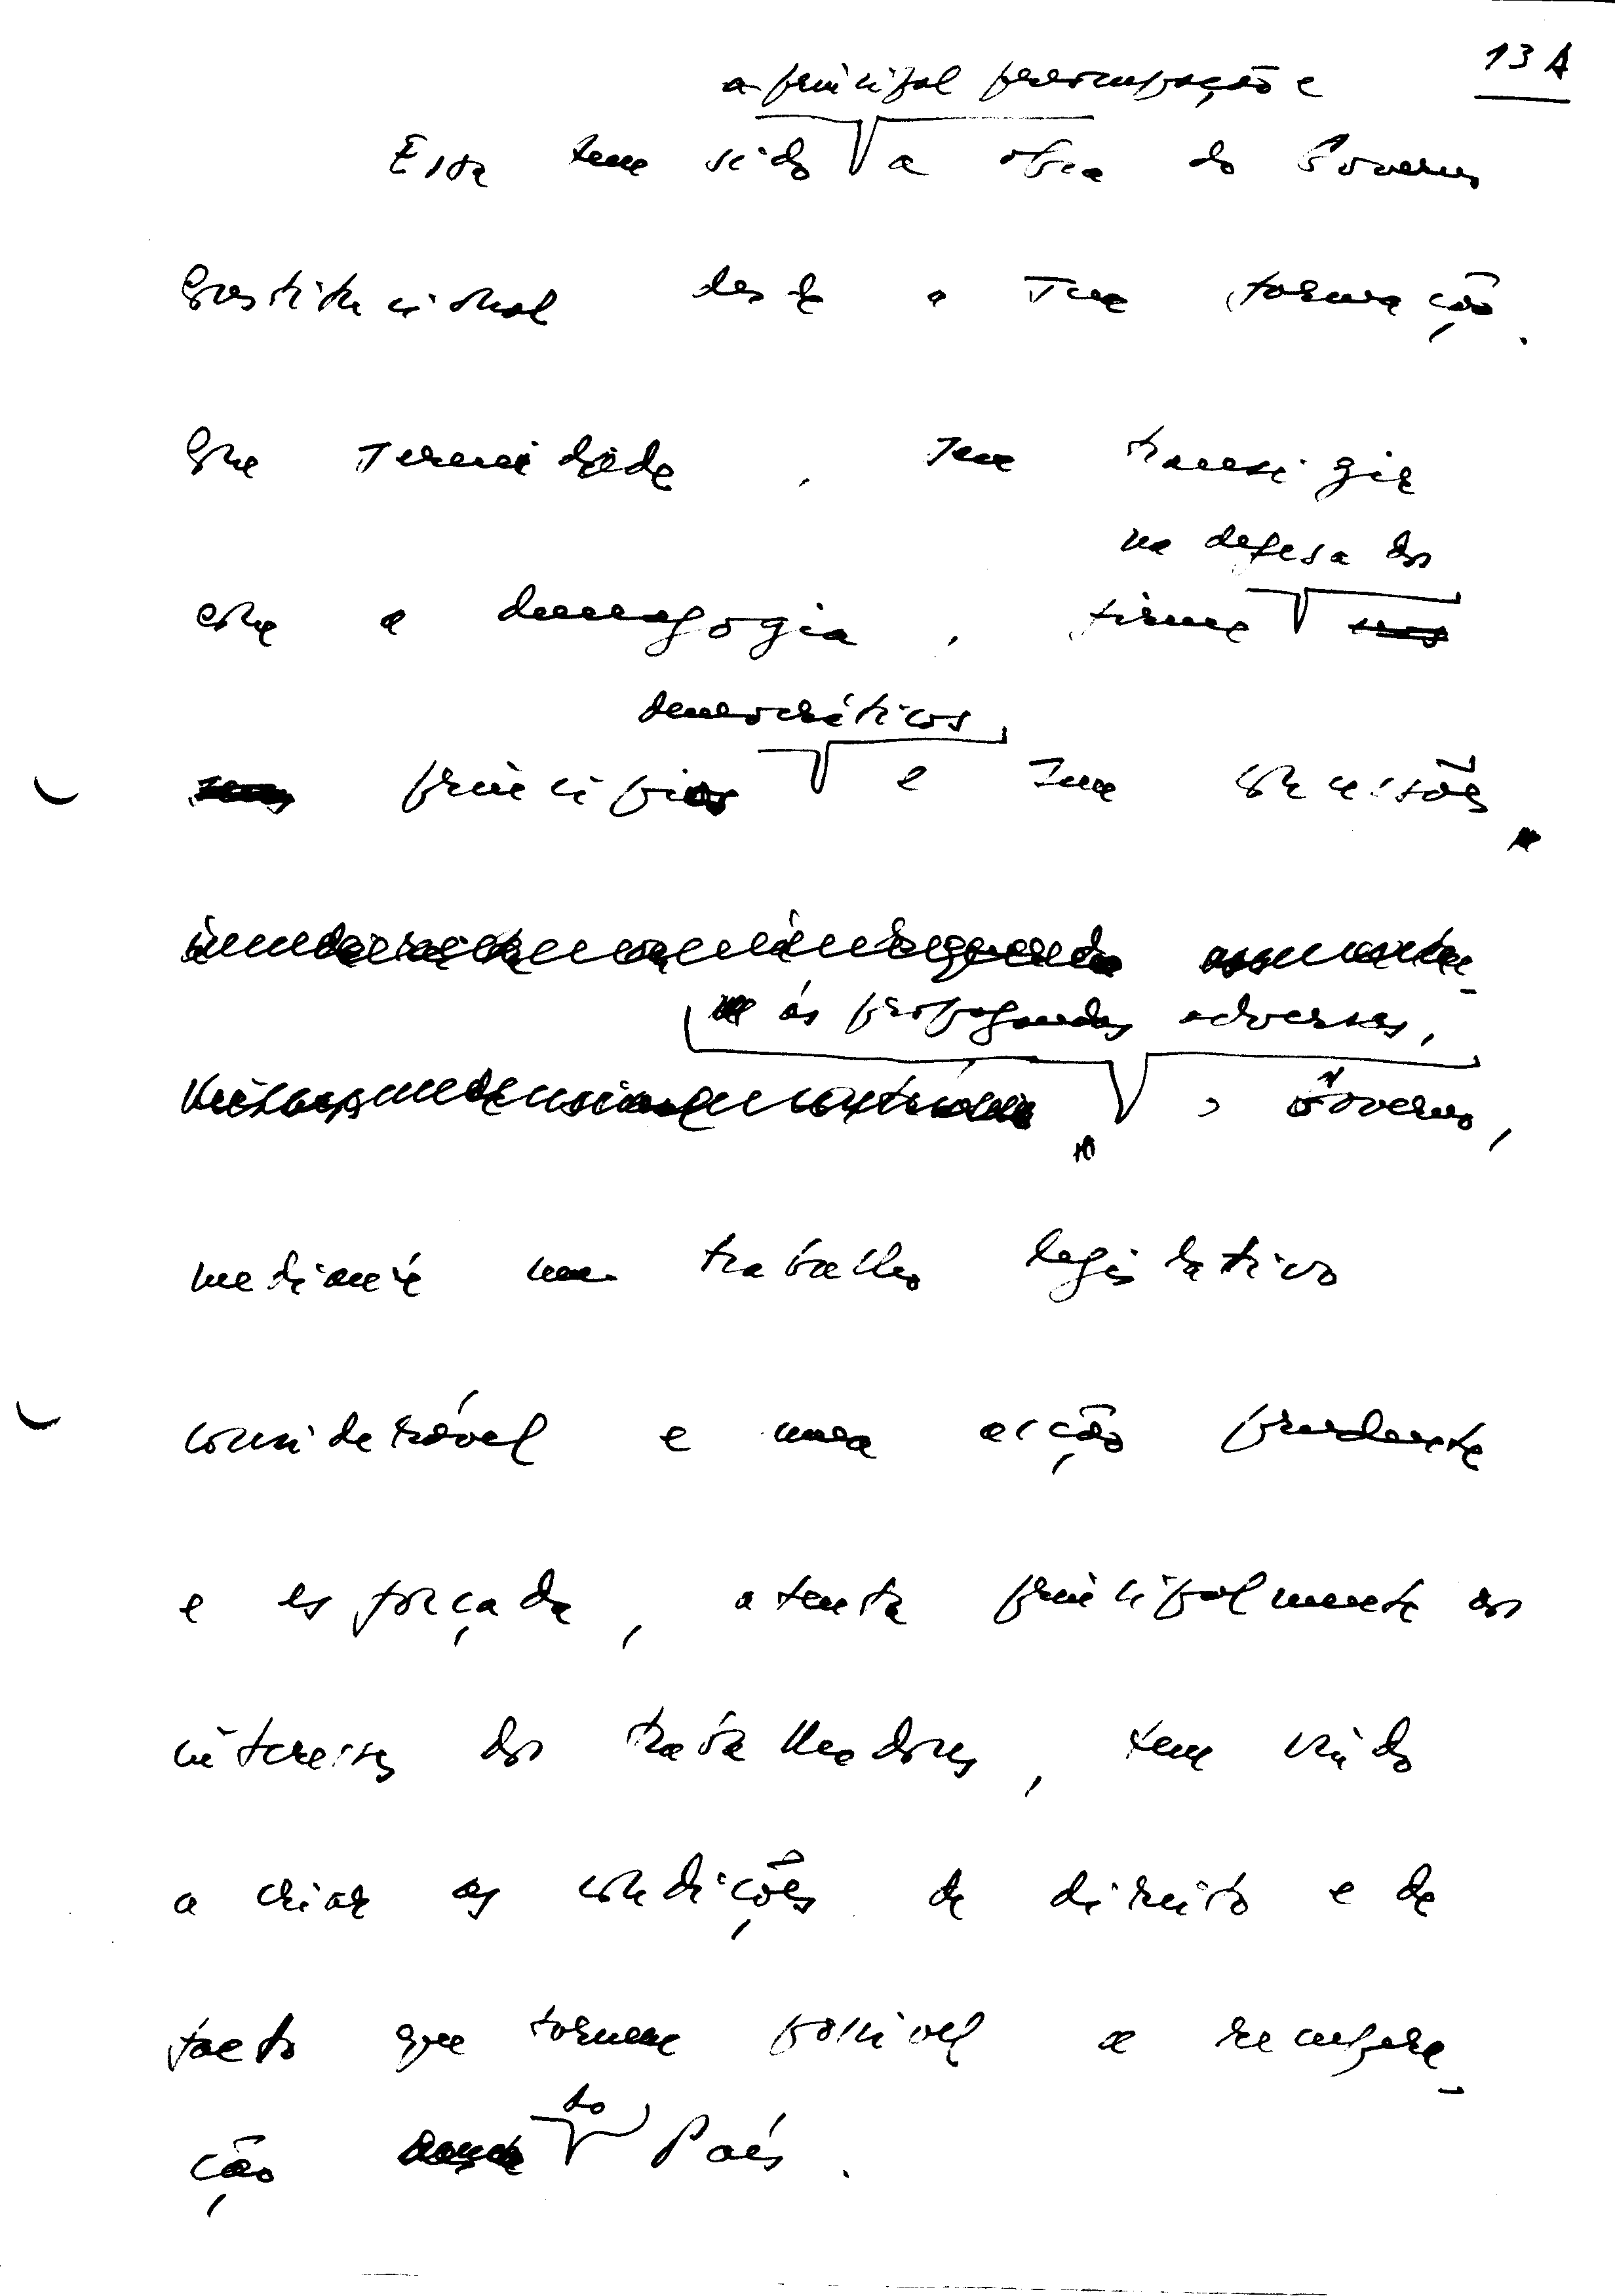 13 A
a principal preocupação e
Essa tem sido a obra do Governo
Constitucional desde a sua formação.
Com serenidade, sem transigir
na defesa dos
com a demagogia, firme nos
democráticos
seus princípios e sem concessões
às propagandas adversas,
o Governo,
mediante um trabalho legislativo
considerável e uma acção prudente
e esforçada, atenta principalmente aos
interesses dos trabalhadores, tem vindo
a criar as condições de direito e de
facto que tornem possível a recupera-
do
ção País.